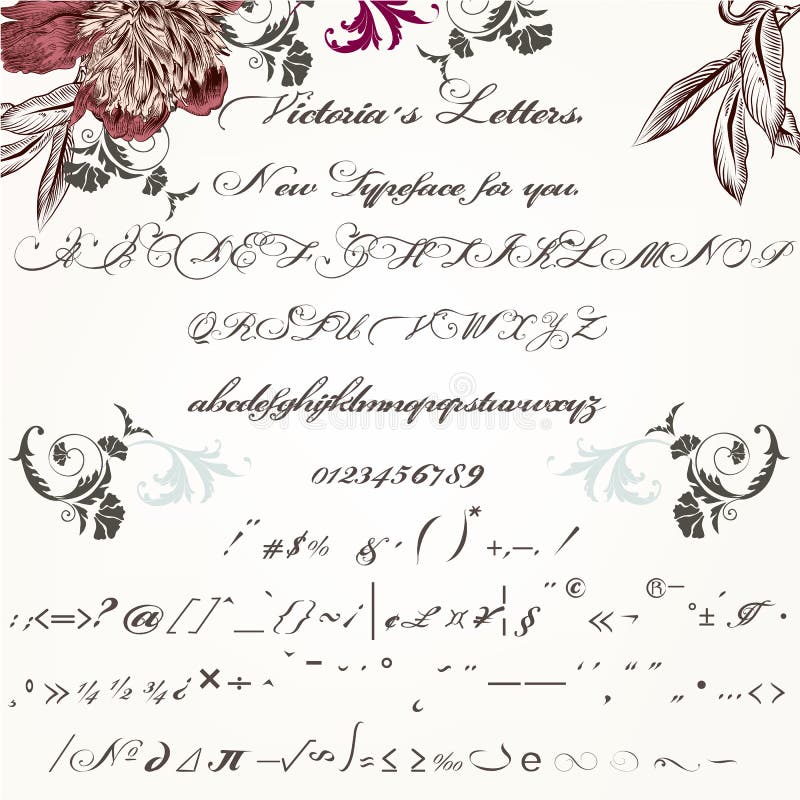 Victoria's Letters.
New Typeface for you.
ABCDEFGHIJKLMNOP
QRSTUVWXYZ
abcdefghijklmnopqrstuvwxyz
0123456789
!"#$% &'()*+,-./
:;<=>?@[]^_`{}~¡|¢£¤¥¦§¨©«¬®¯°±´¶·
¸º»¼½¾¿×÷ˆˇ¯˘˙˚˛˜˝–—‘’‚“”„•…‹›
/№∂∆π−√∞∫≈≤≥‰